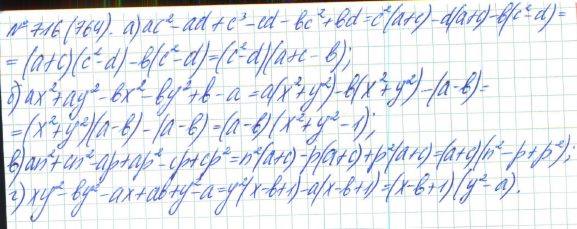 № 716 (764). а) ac² - ad + c³ - cd - bc² + bd = c²(a+c) - d(a+c) - b(c² - d) =
= (a+c)(c² - d) - b(c² - d) = (c² - d)(a + c - b);
б) ax² + ay² - bx² - by² + b - a = a(x² + y²) - b(x² + y²) - (a - b) -
= (x² + y²)(a - b) - (a - b) = (a - b)(x² + y² - 1);
в) an² + cn² - ap + ap² - cp + cp² = n²(a+c) - p(a+c) + p²(a+c) = (a+c)(n² - p + p²);
г) xy² - by² - ax + ab + y² - a = y²(x - b + 1) - a(x - b + 1) = (x - b + 1)(y² - a).